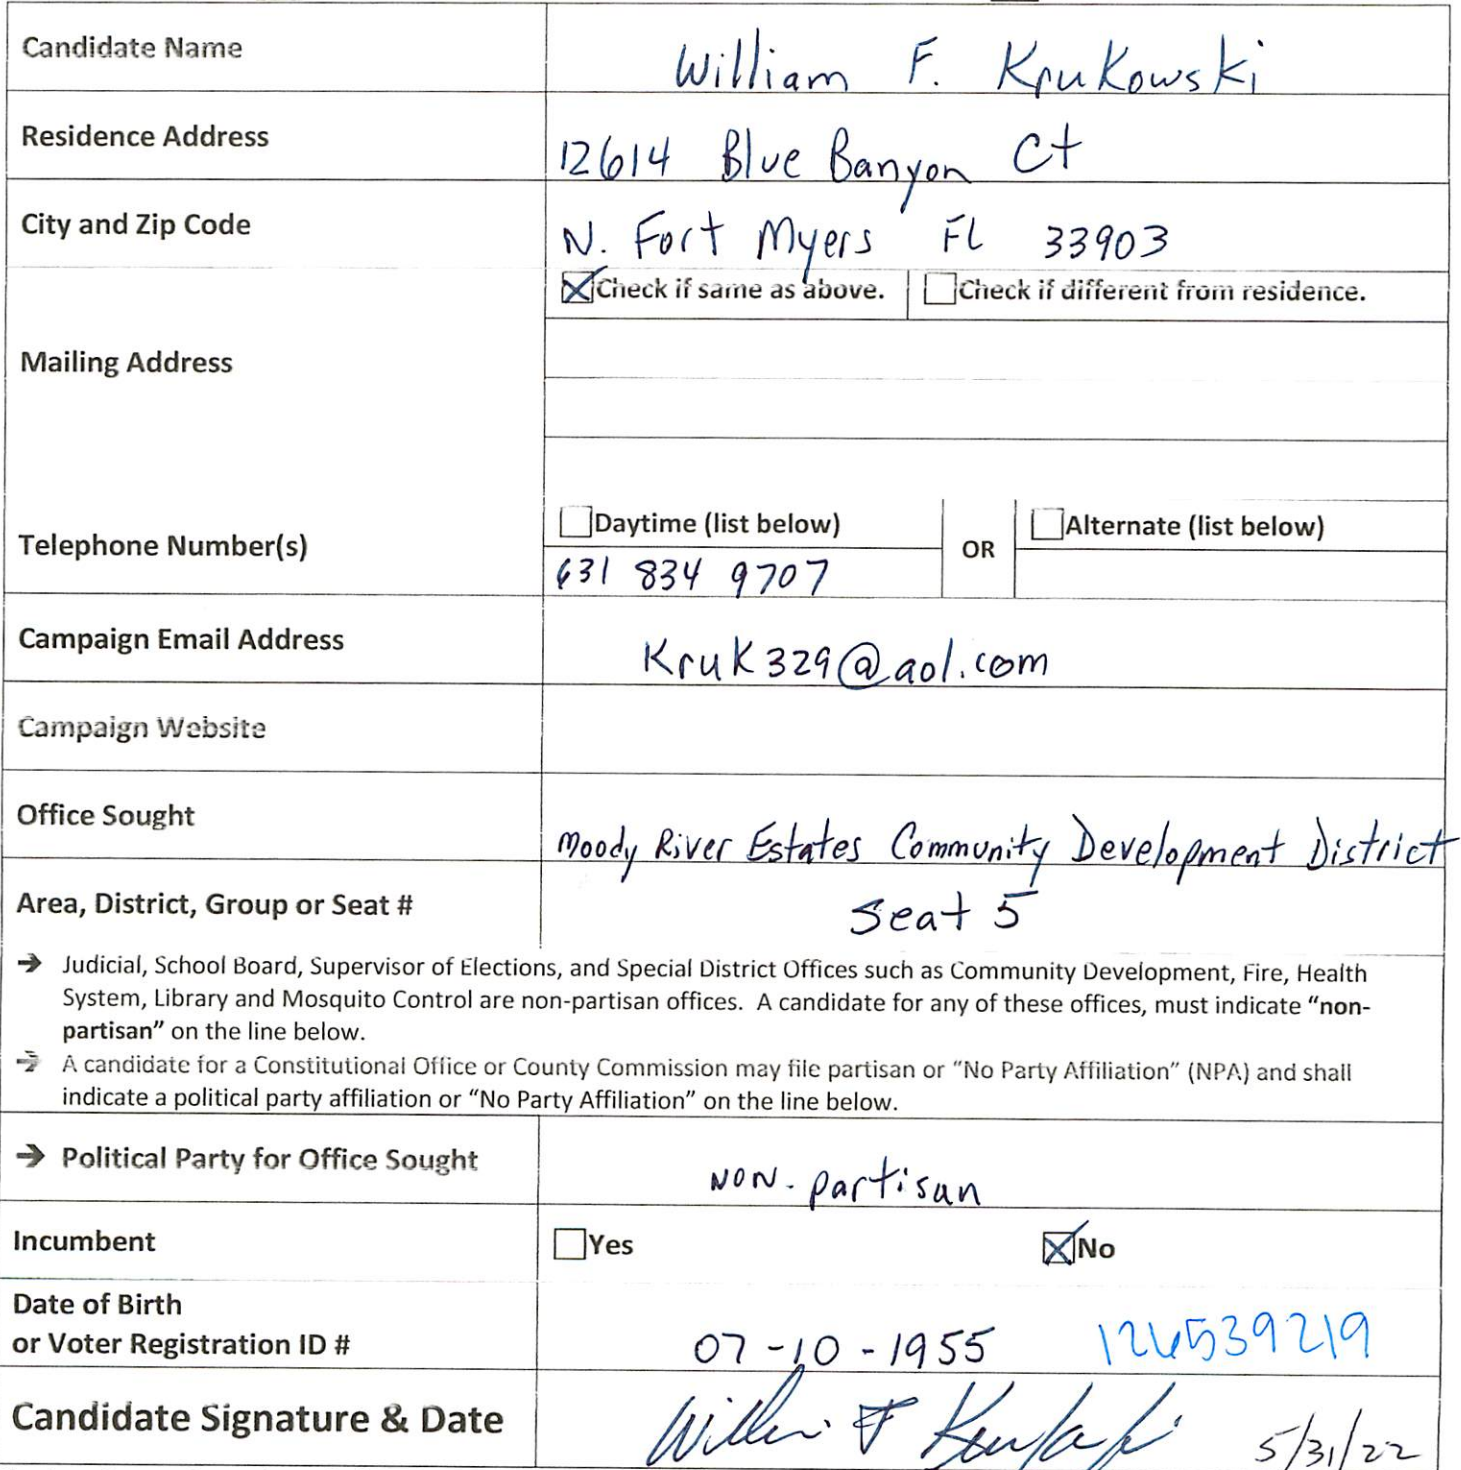 Candidate Name
William F. Krukowski
Residence Address
12614 Blue Banyon Ct
City and Zip Code
N. Fort Myers FL 33903
Check if same as above.
Check if different from residence.
Mailing Address
Telephone Number(s)
Daytime (list below)
OR
Alternate (list below)
631 834 9707
Campaign Email Address
Kruk329@aol.com
Campaign Website
Office Sought
Moody River Estates Community Development District
Area, District, Group or Seat #
Seat 5
→ Judicial, School Board, Supervisor of Elections, and Special District Offices such as Community Development, Fire, Health
System, Library and Mosquito Control are non-partisan offices. A candidate for any of these offices, must indicate "non-
partisan" on the line below.
→ A candidate for a Constitutional Office or County Commission may file partisan or "No Party Affiliation" (NPA) and shall
indicate a political party affiliation or "No Party Affiliation" on the line below.
→ Political Party for Office Sought
NON-partisan
Incumbent
Yes
No
Date of Birth
or Voter Registration ID #
07-10-1955 126539219
Candidate Signature & Date
William F Krukowski 5/31/22